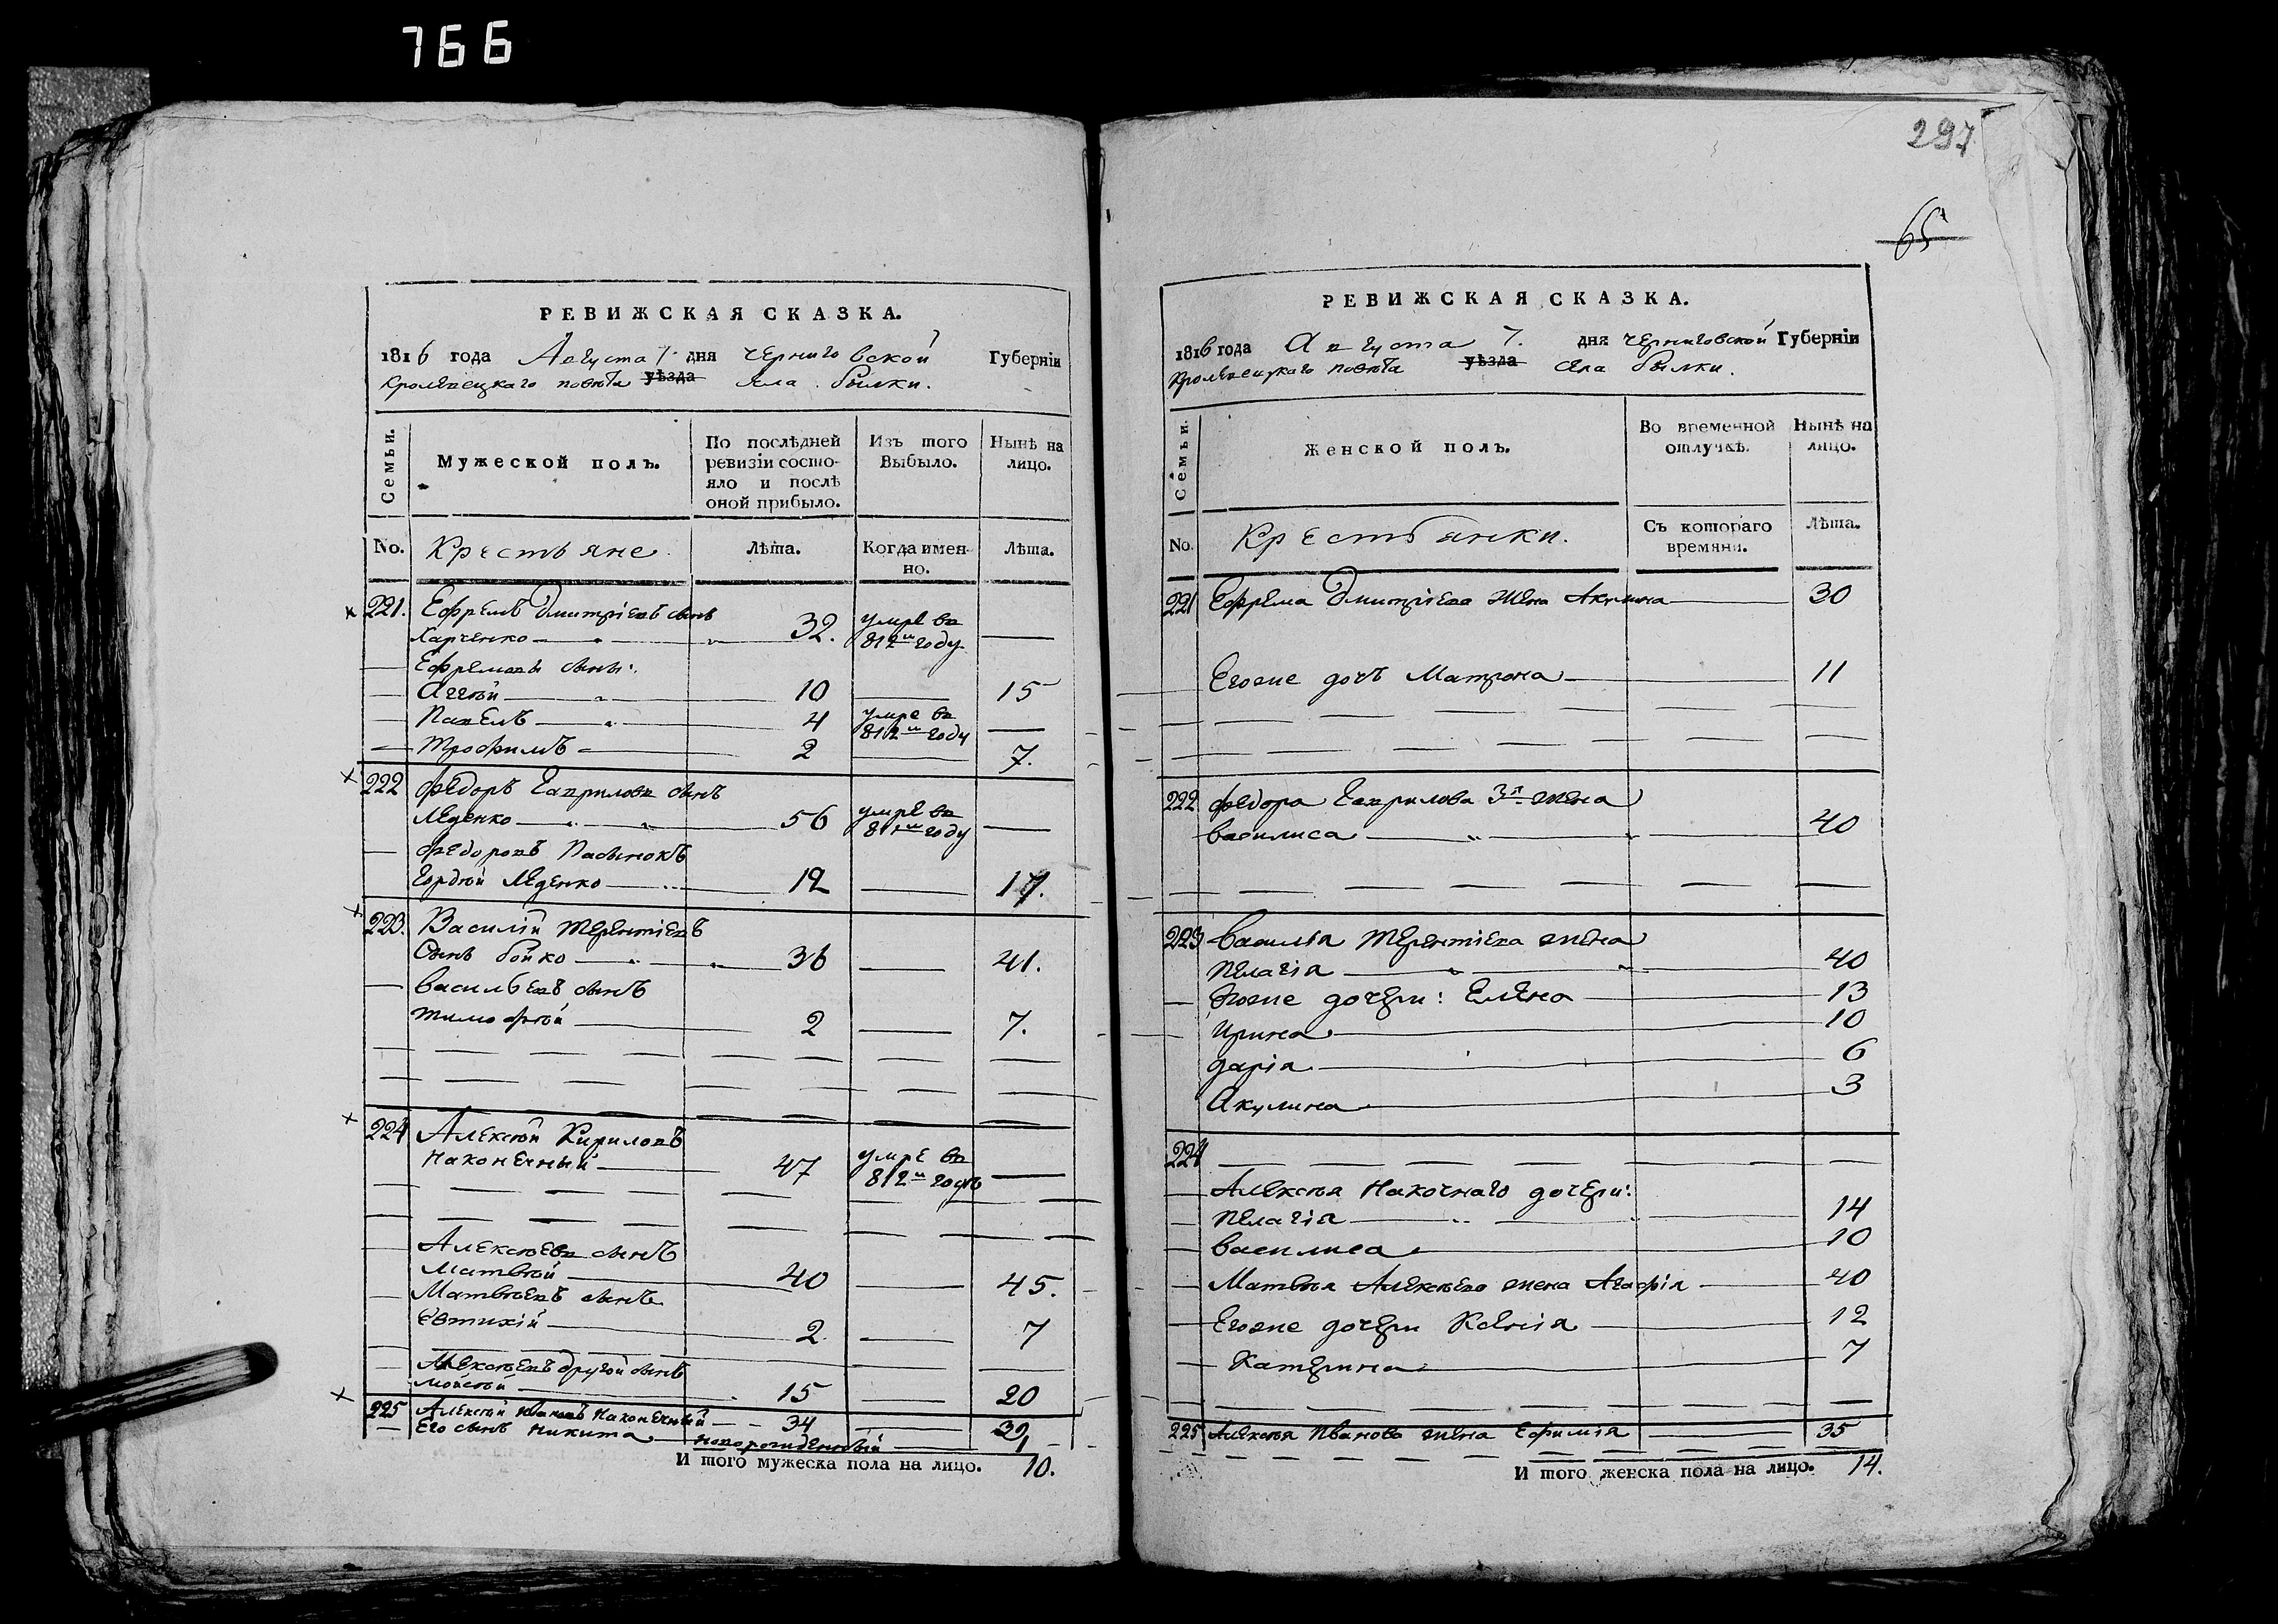 766
РЕВИЖСКАЯ СКАЗКА.
1816 года Августа 7. дня Черниговской Губерніи
Кролевецкаго повѣта уѣзда села Билки.
Семьи.
Мужеской полъ.
По послѣдней ревизіи состо-
яло и послѣ
оной прибыло.
Изъ того
Выбыло.
Нынѣ на
лицо.
No. Крестьяне Лѣта. Когда имен-
но. Лѣта.
221. Ефремъ Дмитріевъ сынъ
Харченко 32. умре въ
812м году
Ефремовы сыны:
Аггѣй 10 15
Павелъ 4 умре въ
812м году
Трофимъ 2 7.
222 Федоръ Гаврилова сынъ
Леденко 56 умре въ
811м году
Федоровъ Пасынокъ
Гордѣй Леденко 12 17.
223. Василій Терентіевъ
Сынъ Бойко 36 41.
Васильевъ сынъ
Тимофѣй 2 7.
224 Алексѣй Кириловъ
Наконечный 47 умре въ
812м годѣ
Алексѣевъ сынъ
Матвѣй 40 45.
Матвѣевъ сынъ
Евтихій 2 7
Алексѣевъ другой сынъ
Мойсѣй 15 20
225 Алексѣй Ивановъ Наконечный 34 39
Его сынъ Никита новорожденный 1
И того мужеска пола на лицо. 10.
297
65
РЕВИЖСКАЯ СКАЗКА.
1816 года Августа 7. дня Черниговской Губерніи
Кролевецкаго повѣта уѣзда села Билки.
Семьи.
Женской полъ.
Во временной
отлучкѣ.
Нынѣ на
лицо.
No. Крестьянки. Съ котораго
времяни. Лѣта.
221 Ефрема Дмитріева жена Акулина 30
Егоже дочь Матрона 11
222 Федора Гаврилова 3я жена
Василиса 40
223 Василія Терентіева жена
Пелагія 40
Егоже дочери: Елена 13
Ирина 10
Дарія 6
Акулина 3
224
Алексѣя Наконнаго дочери:
Пелагія 14
Василиса 10
Матвѣя Алексѣева жена Агафія 40
Егоже дочери Ксенія 12
Катерина 7
225 Алексѣя Иванова жена Ефимія 35
И того женска пола на лицо. 14.